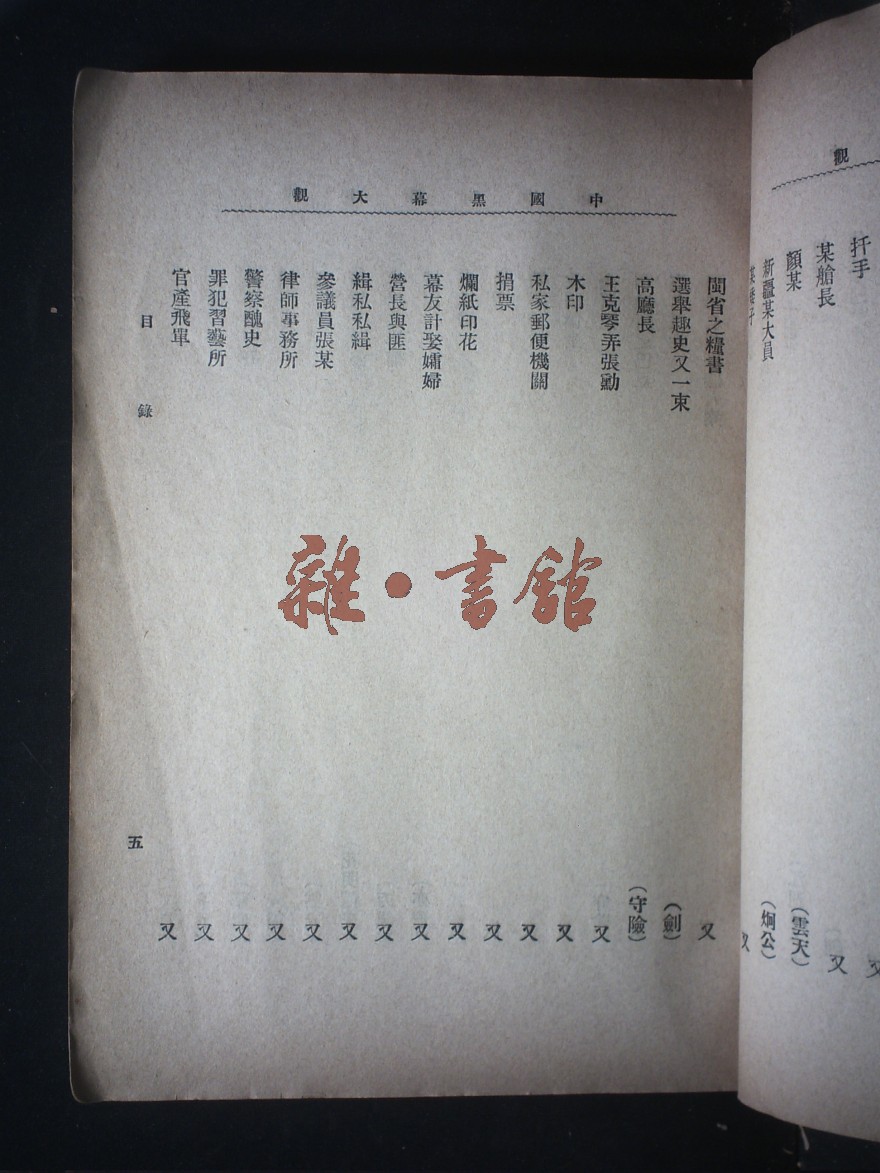 觀
扦手 又
某艙長 又
顏某 (雲天)
新疆某大員 (炯公)
又
中國黑幕大觀
閩省之糧書 又
選舉趣史又一束 (劍)
高廳長 (守險)
王克琴弄張勳 又
木印 又
私家郵便機關 又
捐票 又
爛紙印花 又
幕友計娶孀婦 又
營長與匪 又
緝私私緝 又
參議員張某 又
律師事務所 又
警察醜史 又
罪犯習藝所 又
官產飛單 又
目錄 五
雜·書館